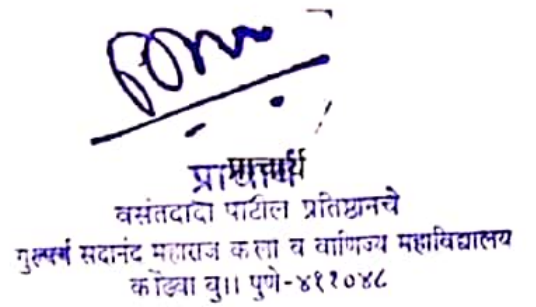 प्राचार्य
वसंतदादा पाटील प्रतिष्ठानचे
गुरुवर्य सदानंद महाराज कला व वाणिज्य महाविद्यालय
कोंढवा बु।। पुणे-४११०४८